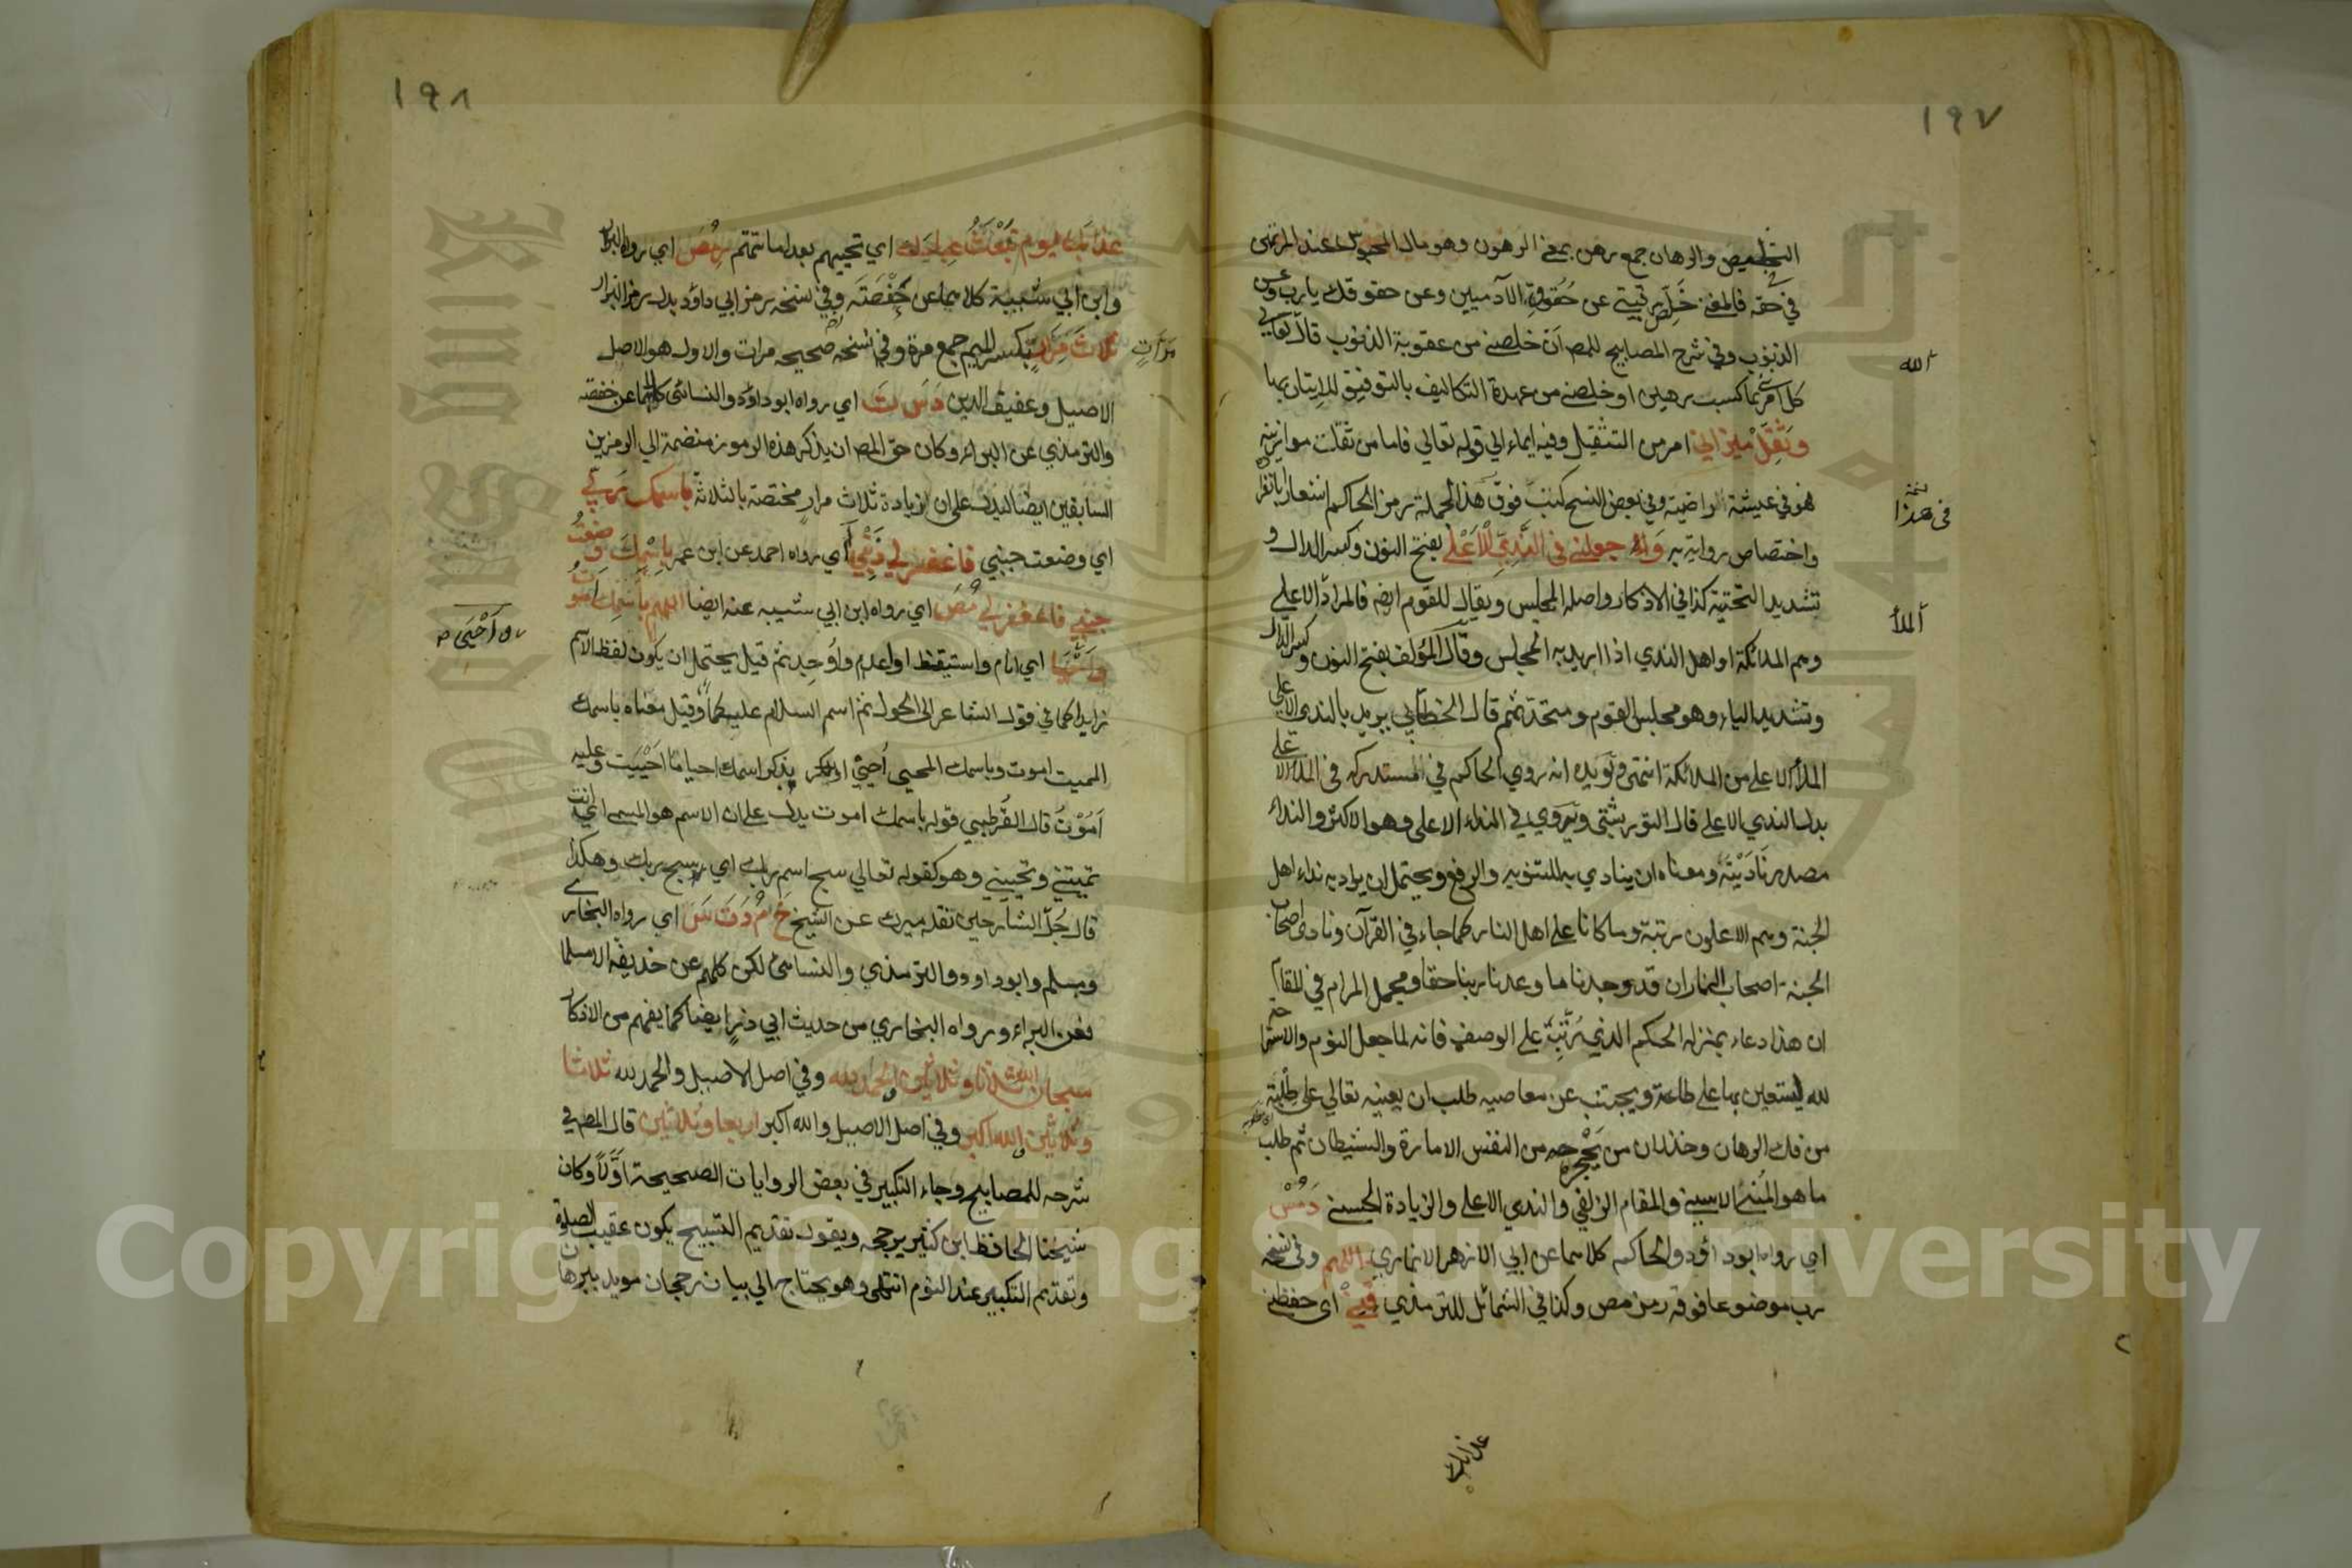 ١٩٧
التخليص والرهان جمع رهن بمعنى الرهون وهو مال المحبوس عند المرتهن
في حقه فالمعنى خلص رقبتي عن حقوق الآدميين وعن حقوقك يا رب وعن
الذنوب وفي شرح المصابيح للمص اى خلصني من عقوبة الذنوب قال تعالى
كل امرئ بما كسب رهين او خلصني من عهدة التكاليف بالتوفيق للاتيان بها
وثقل ميزاني امر من التثقيل وفيه ايماء الي قوله تعالي فاما من ثقلت موازينه
فهو في عيشة راضية وفي بعض النسخ كتب فوق هذه الجملة رمز الحاكم اشعارا بانفراده
واختصاص روايته به واجعلني في الندي الاعلى بفتح النون وكسر الدال و
تشديد التحتية كذا في الاذكار واصله المجلس ويقال للقوم ايضا فالمراد الاعلي
وهم الملائكة او اهل الندي اذا اريد به المجلس وقال المؤلف بفتح النون وكسر الدال
وتشديد الياء وهو مجلس القوم ومتحدثهم قال الخطابي يريد بالندي الاعلي
الملأ الاعلي من الملائكة انتهى ويؤيده انه روي الحاكم في المستدرك في الملأ الاعلى
بدل الندي الاعلي قال التوربشتي ويروي في النداء الاعلى وهو الاكثر والنداء
مصدر ناديته ومعناه ان ينادي به للتنويه والرفع ويحتمل ان يراد به نداء اهل
الجنة وهم الاعلون رتبة ومكانا علي اهل النار كما جاء في القرآن ونادى اصحاب
الجنة اصحاب النار ان قد وجدنا ما وعدنا ربنا حقا ومجمل المرام في المقام
ان هذا دعاء بمنزلة الحكم الذي رتبه علي الوصف فانه لما جعل النوم والاستراحة
لله ليستعين بها علي طاعته ويجتنب عن معاصيه طلب ان يعينه تعالي على طلبته
من فك الرهان وخذلان من يحجزه من النفس الامارة والشيطان ثم طلب
ما هو المنى الاسنى والمقام الزلفي والندي الاعلي والزيادة الحسنى د مس
اي رواه ابو داؤد والحاكم كلاهما عن ابي الازهر الانماري اللهم وفى نسخه
رب موضوعا فوقه رمز مص وكذا في الشمائل للترمذي قني اى حفظني
عذابك
الله
في هذا
الملأ
١٩٨
عذابك يوم تبعث عبادك اي تحييهم بعد اماتتهم ر مص اي رواه البزار
وابن ابي شيبة كلاهما عن حفصة وفي نسخه رمز ابي داؤد بدل رمز البزار
ثلاث مرار بكسر الميم جمع مرة وفي نسخه صحيحه مرات والاول هو الاصل
الاصيل وعفيف الدين د س ت اي رواه ابو داؤد والنسائى كلاهما عن حفصه
والترمذي عن البراء وكان حق المص ان يذكر هذه الرموز منضمة الي الرمزين
السابقين ايضا ليدل علي ان زيادة ثلاث مرار مختصة بالثلاثة باسمك ربي
اي وضعت جنبي فاغفر لي ذنبي أ اي رواه احمد عن ابن عمر باسمك وضعت
جنبي فاغفر لي مص اي رواه ابن ابي شيبه عنه ايضا اللهم باسمك اموت
واحيا اي انام واستيقظ او اعدم واوجد ثم قيل يحتمل ان يكون لفظ الاسم
زايدا كما في قول الشاعر الى الحول ثم اسم السلام عليكما وقيل معناه باسمك
المميت اموت وباسمك المحيي أحيي او بذكر اسمك احيا ما احييت وعليه
اموت قال القرطبي قوله باسمك اموت يدل علي ان الاسم هو المسمى اي انت
تميتني وتحييني وهو كقوله تعالي سبح اسم ربك اي سبح ربك وهكذا
قال جل الشارحين نقله ميرك عن الشيخ خ م د ت س اي رواه البخاري
ومسلم وابو داود والترمذي والنسائى لكن كلهم عن حذيفه الا مسلما
فعن البراء ورواه البخاري من حديث ابي ذر ايضا كما يفهم من الاذكار
سبحان الله ثلاثا وثلاثين الحمد لله وفي اصل الاصيل والحمد لله ثلاثا
وثلاثين الله اكبر وفي اصل الاصيل والله اكبر اربعا وثلاثين قال المص في
شرحه للمصابيح وجاء التكبير في بعض الروايات الصحيحة اولا وكان
شيخنا الحافظ ابن كثير يرجحه ويقول تقديم التسبيح يكون عقيب الصلوة
وتقديم التكبير عند النوم انتهى وهو يحتاج الي بيان رجحان مويد ببرهان
مرات
واحيى